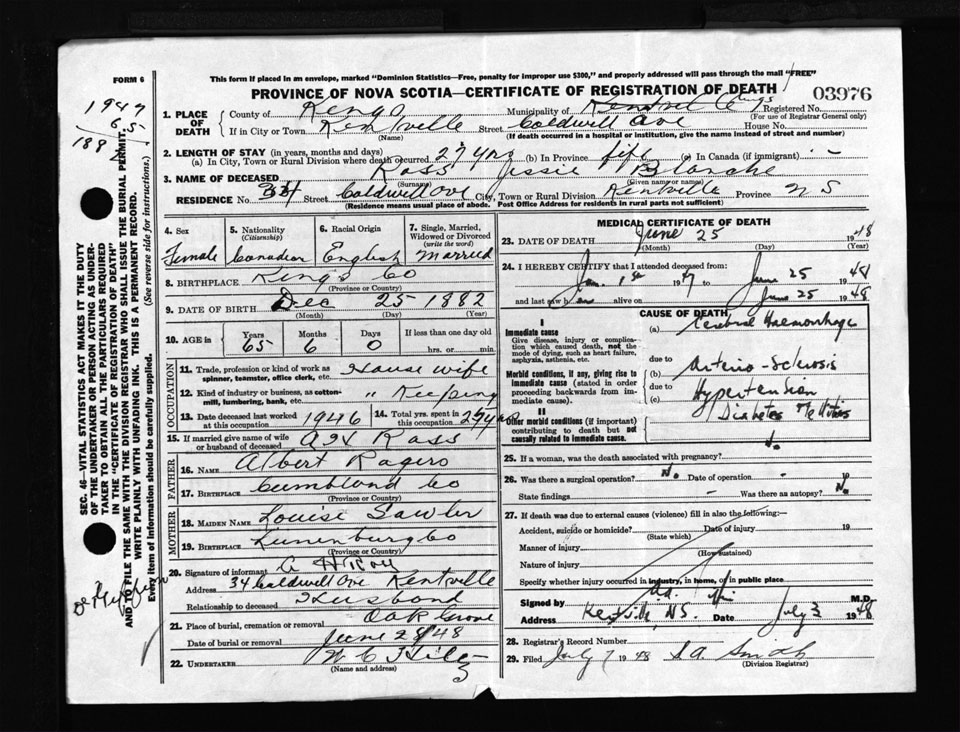 FORM 6
This form if placed in an envelope, marked "Dominion Statistics—Free, penalty for improper use $300," and properly addressed will pass through the mail "FREE"
PROVINCE OF NOVA SCOTIA—CERTIFICATE OF REGISTRATION OF DEATH
03976
1947
6 5
1882
1. PLACE OF DEATH County of Kings Municipality of Kings Registered No.
(For use of Registrar General only)
If in City or Town Kentville Street Caldwell Ave House No.
(Name) (If death occurred in a hospital or institution, give the name instead of street and number)
2. LENGTH OF STAY (in years, months and days)
(a) In City, Town or Rural Division where death occurred. 27 yrs (b) In Province life (c) In Canada (if immigrant) -
3. NAME OF DECEASED Ross Jessie Blanche
(Surname) (Given name or names)
RESIDENCE No. 34 Street Caldwell Ave City, Town or Rural Division Kentville Province N S
(Residence means usual place of abode. Post Office Address for residents in rural parts not sufficient)
4. Sex
Female
5. Nationality
(Citizenship)
Canadian
6. Racial Origin
English
7. Single, Married, Widowed or Divorced
(write the word)
Married
8. BIRTHPLACE Kings Co
(Province or County)
9. DATE OF BIRTH Dec 25 1882
(Month) (Day) (Year)
10. AGE in Years Months Days If less than one day old
65 6 0 hrs. or min.
OCCUPATION
11. Trade, profession or kind of work as spinner, teamster, office clerk, etc. House wife
12. Kind of industry or business, as cotton-mill, lumbering, bank, etc. Keeping
13. Date deceased last worked at this occupation 1946
14. Total yrs. spent in this occupation
15. If married give name of wife or husband of deceased Ross
FATHER
16. NAME Albert Rogers
17. BIRTHPLACE Cumbland Co
(Province or County)
MOTHER
18. MAIDEN NAME Louise Sawler
19. BIRTHPLACE Lunenburg Co
(Province or County)
20. Signature of informant
Address 34 Caldwell Ave Kentville
Relationship to deceased Husband
21. Place of burial, cremation or removal Oak Grove
Date of burial or removal June 28/48
22. UNDERTAKER
(Name and address)
MEDICAL CERTIFICATE OF DEATH
23. DATE OF DEATH June 25 1948
(Month) (Day) (Year)
24. I HEREBY CERTIFY that I attended deceased from:
Jan. 1st 1947 to June 25 1948
and last saw h alive on June 25 1948
CAUSE OF DEATH
I
Immediate cause
Give disease, injury or complication which caused death, not the mode of dying, such as heart failure, asphyxia, asthenia, etc.
(a) Cerebral Haemorrhage
due to
Morbid conditions, if any, giving rise to immediate cause (stated in order proceeding backwards from immediate cause).
(b) Arterio-Sclerosis
due to
(c) Hypertension
II
Other morbid conditions (if important) contributing to death but not causally related to immediate cause.
Diabetes Mellitus
25. If a woman, was the death associated with pregnancy? No.
26. Was there a surgical operation? No. Date of operation - 19
State findings - Was there an autopsy? No.
27. If death was due to external causes (violence) fill in also the following:—
Accident, suicide or homicide? Date of injury 19
(State which)
Manner of injury
(How sustained)
Nature of injury
Specify whether injury occurred in industry, in home, or in public place
Signed by M.D.
Address Kentville, N.S. Date July 3 1948
28. Registrar's Record Number
29. Filed July 7 1948 Smith
(Division Registrar)
SEC. 46—VITAL STATISTICS ACT MAKES IT THE DUTY
OF THE UNDERTAKER OR PERSON ACTING AS UNDER-
TAKER TO OBTAIN ALL THE PARTICULARS REQUIRED
IN THE "CERTIFICATE OF REGISTRATION OF DEATH"
AND TO FILE THE SAME WITH THE DIVISION REGISTRAR WHO SHALL ISSUE THE BURIAL PERMIT.
WRITE PLAINLY WITH UNFADING INK. THIS IS A PERMANENT RECORD.
Every item of Information should be carefully supplied. (See reverse side for instructions.)